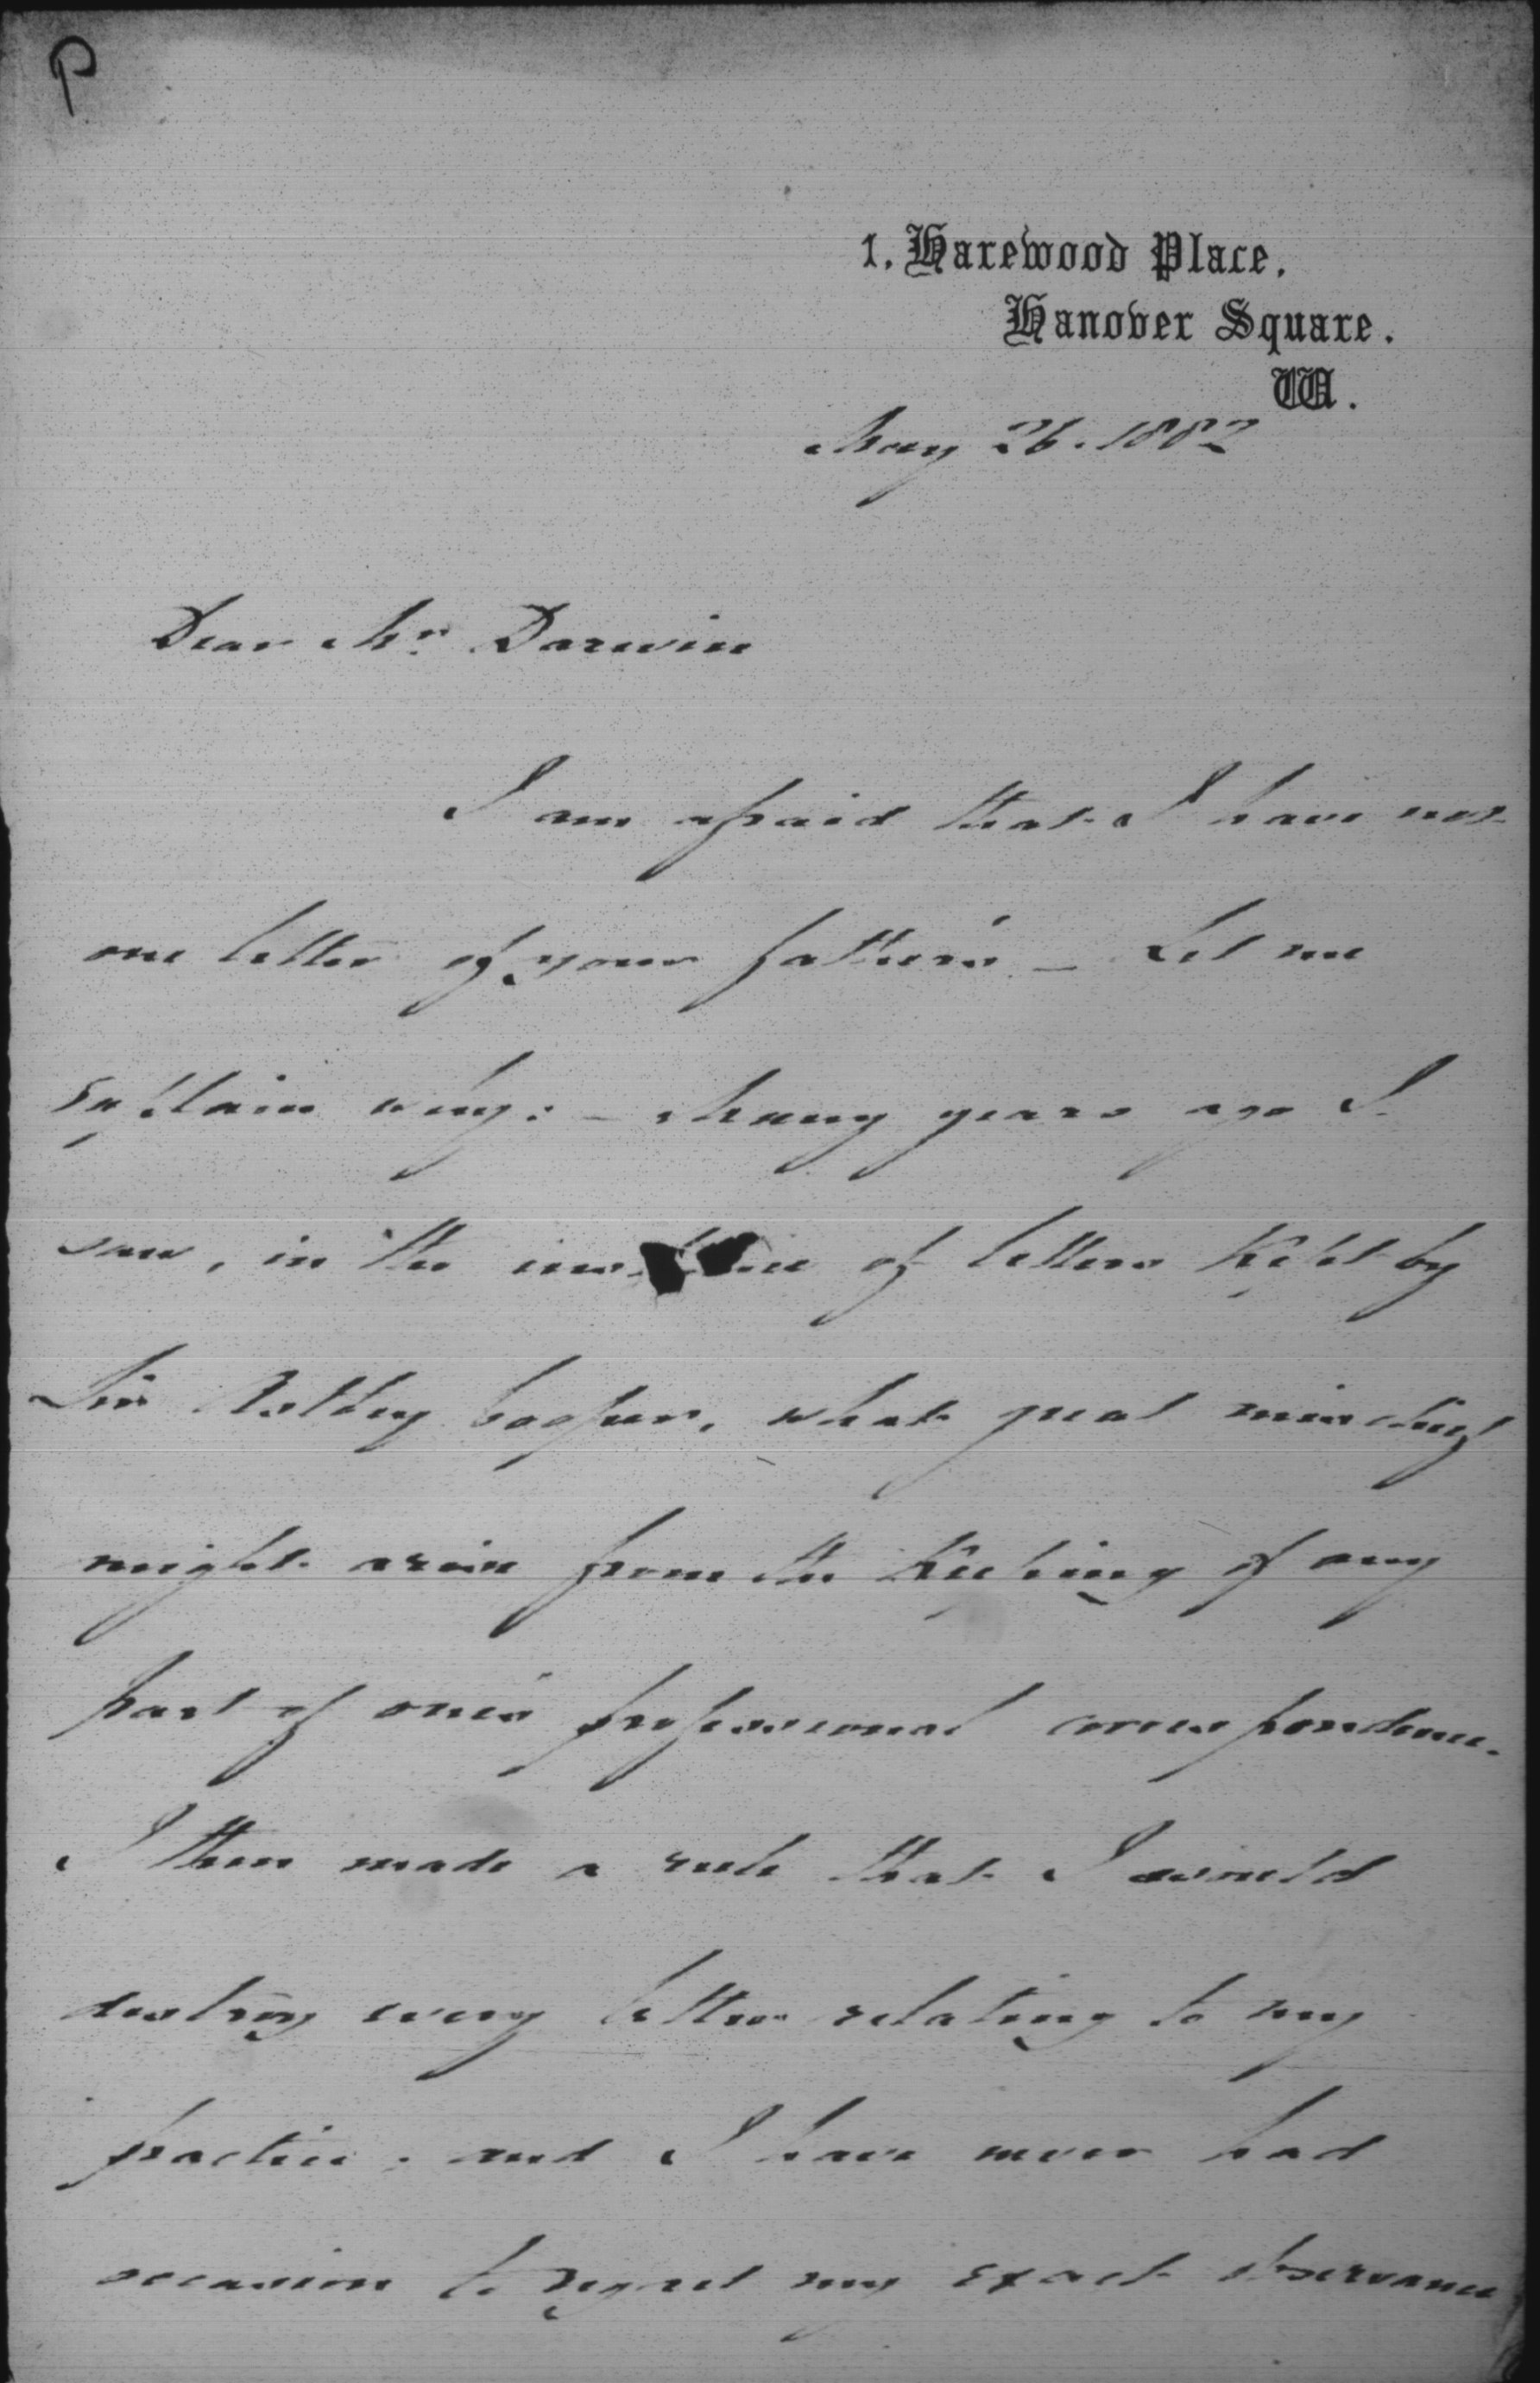 P
1. Harewood Place.
Hanover Square.
W.
May 26. 1882
Dear Mr. Darwin
I am afraid that I have not
one letter of your father's – Let me
explain why: – Many years ago I
saw, in the of letters kept by
Sir Astley Cooper, what great mischief
might arise from the keeping of any
part of one's professional correspondence.
I then made a rule that I would
destroy every letter relating to my
practice; and I have never had
occasion to regret my exact observance